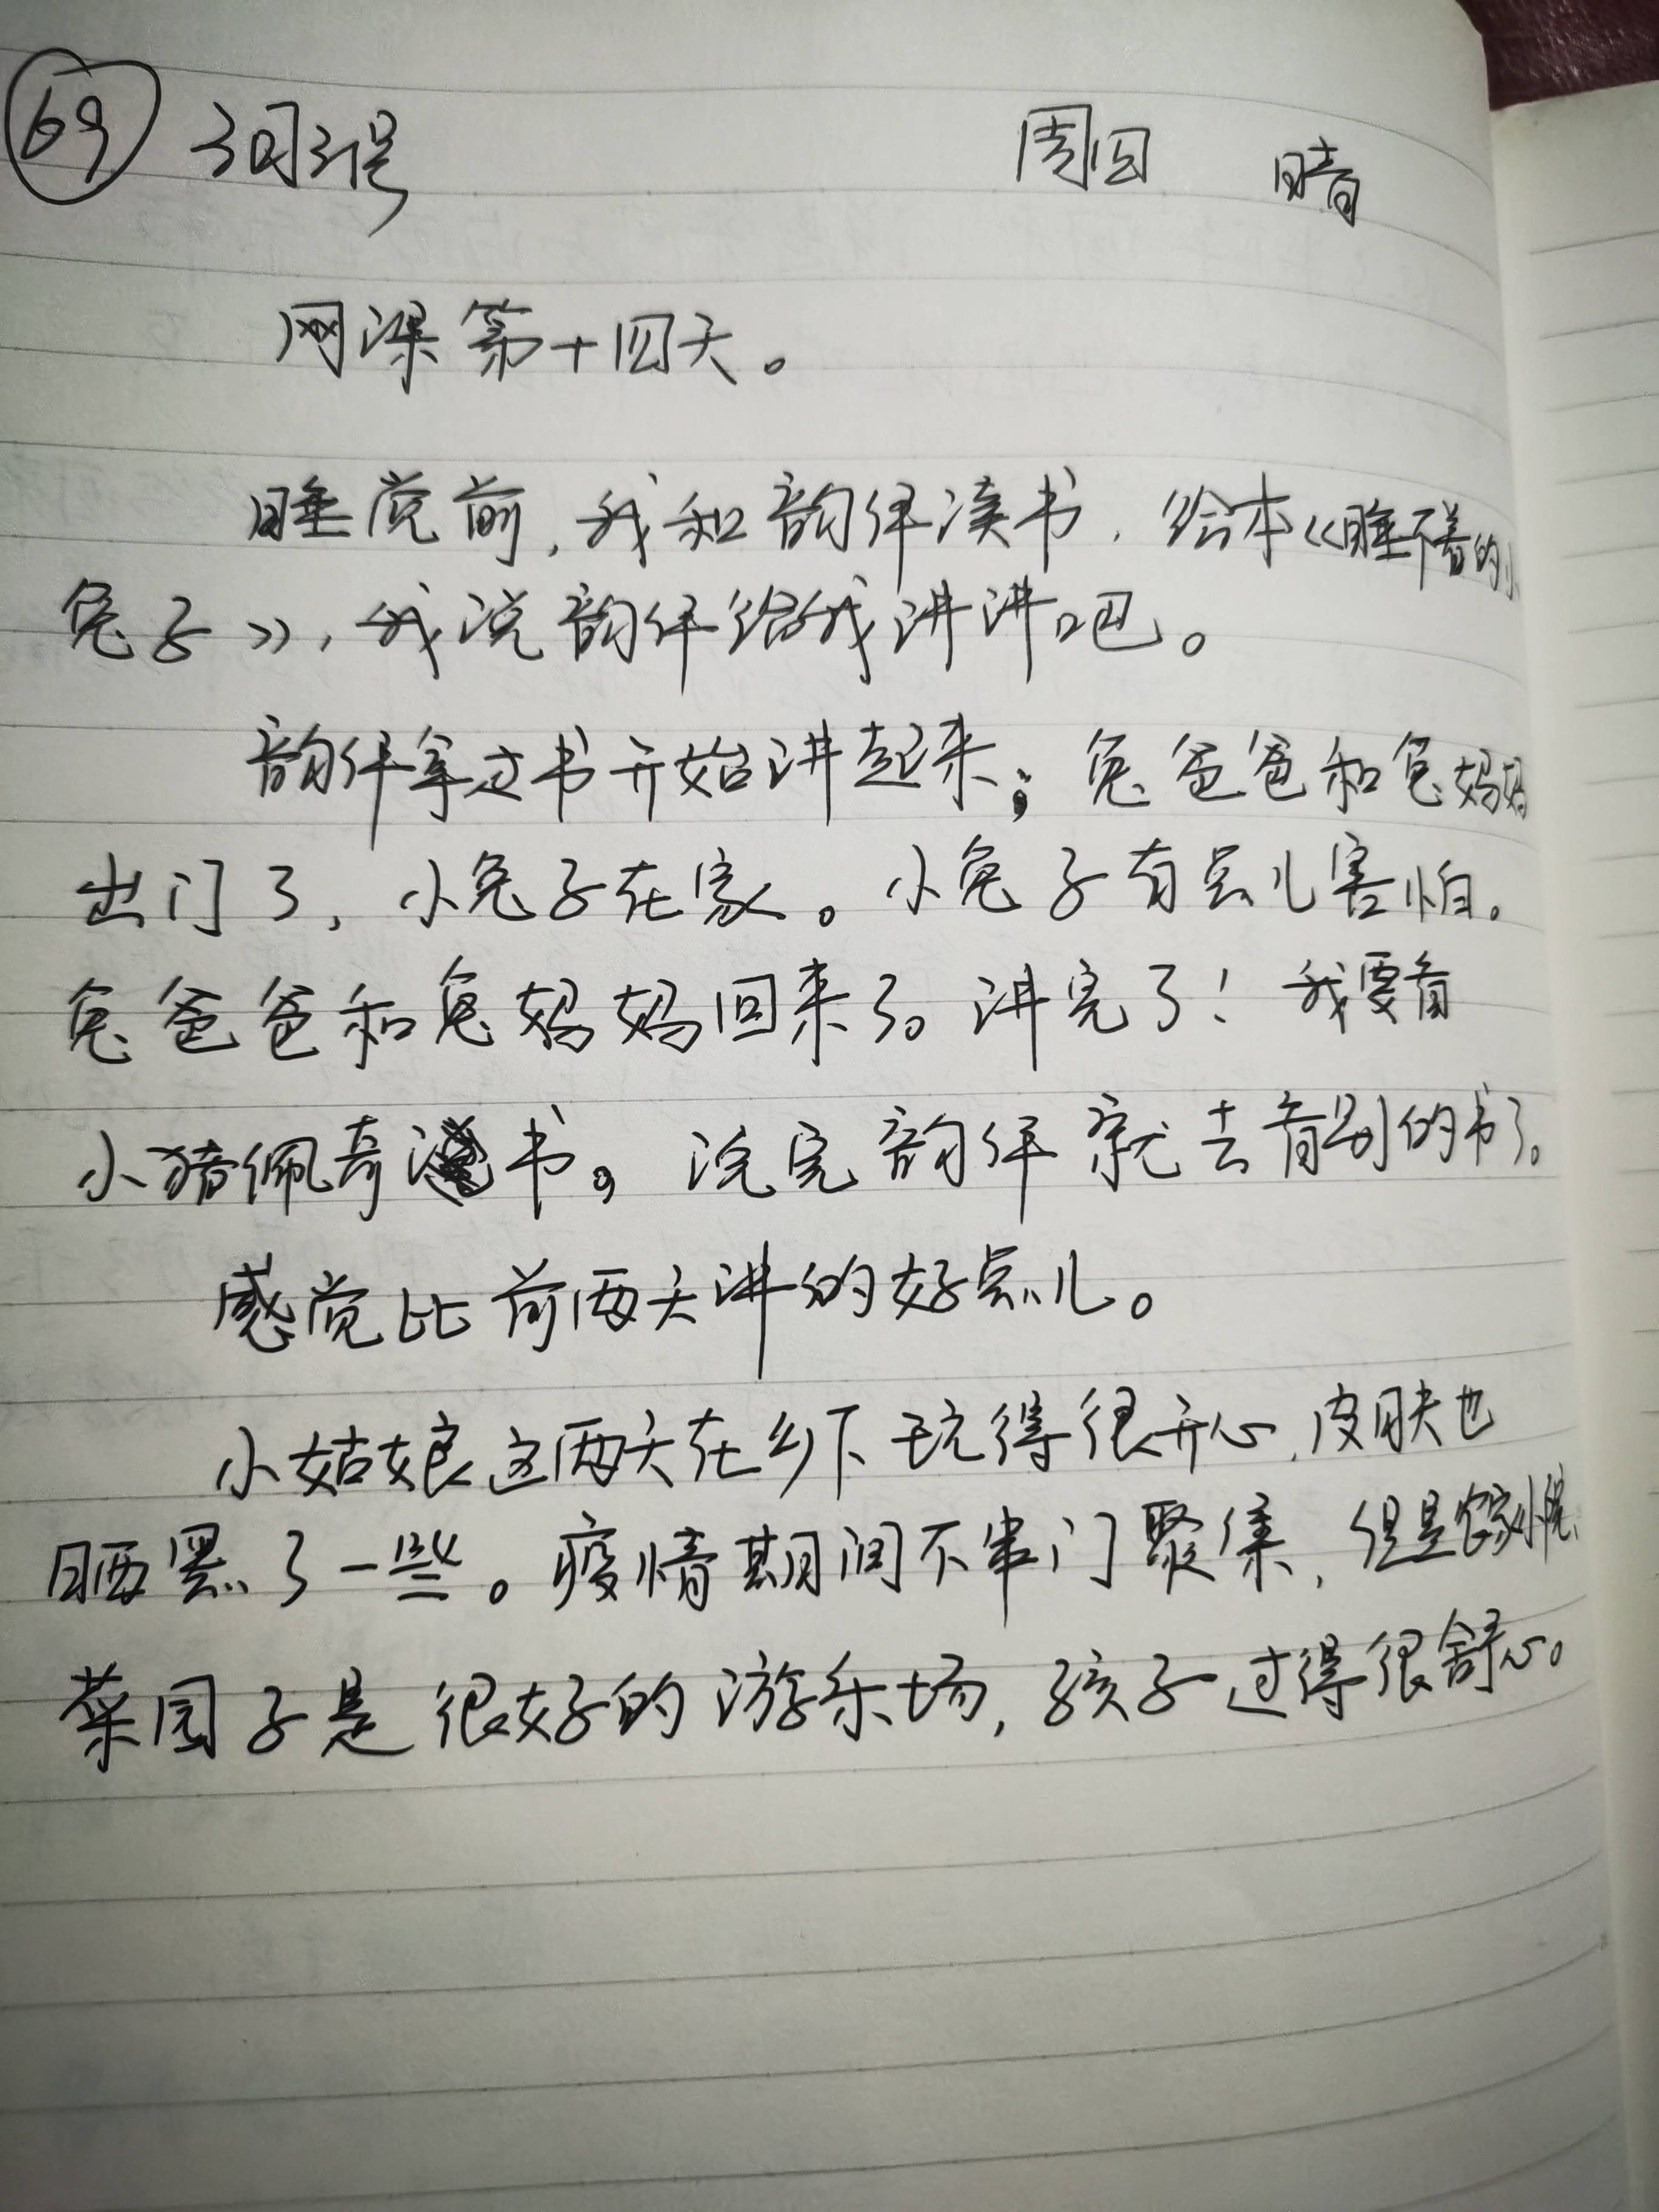 69 3月3号 周日 晴
网课第十四天。
睡觉前,我和韵伴读书,绘本《睡不着的小
兔子》,我说韵伴给我讲讲吧。
韵伴拿过书开始讲起来;兔爸爸和兔妈妈
出门了,小兔子在家。小兔子有点儿害怕。
兔爸爸和兔妈妈回来了。讲完了!我要看
小猪佩奇书。说完韵伴就去看别的书了。
感觉比前两天讲的好点儿。
小姑娘这两天在乡下玩得很开心,皮肤也
晒黑了一些。疫情期间不串门聚集,但是农家小院、
菜园子是很好的游乐场,孩子过得很舒心。